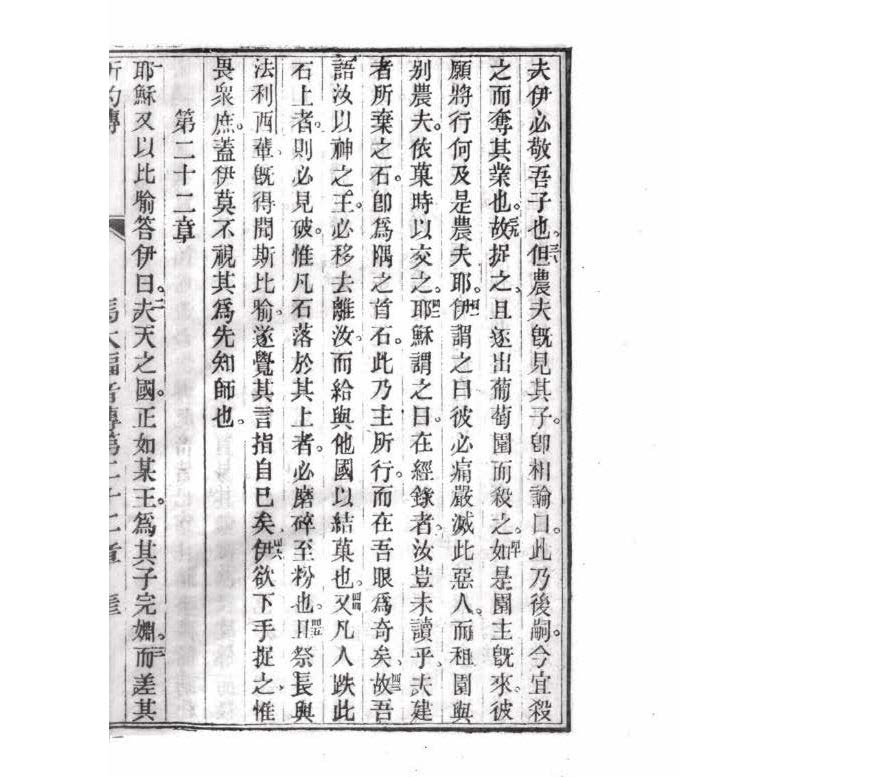 夫伊必敬吾子也。卅八但農夫旣見其子。卽相論曰。此乃後嗣。今宜殺
之而奪其業也。卅九故捉之、且逐出葡萄園而殺之。四十如是園主旣來。彼
願將行何及是農夫耶。四一伊謂之曰彼必痛嚴滅此惡人。而租園與
别農夫。依菓時以交之。四二耶穌謂之曰。在經錄者。汝豈未讀乎、夫建
者所棄之石。卽爲隅之首石。此乃主所行。而在吾眼爲奇矣、四三故吾
語汝以神之王。必移去離汝。而給與他國以結菓也。四四又凡人跌此
石上者。則必見破。惟凡石落於其上者。必磨碎至粉也。四五且祭長與
法利西輩、旣得聞斯比喻。遂覺其言指自已矣、四六伊欲下手捉之、惟
畏衆庶。蓋伊莫不視其爲先知師也。
第二十二章
一耶穌又以比喻答伊曰。二夫天之國。正如某王。爲其子完婣。三而差其